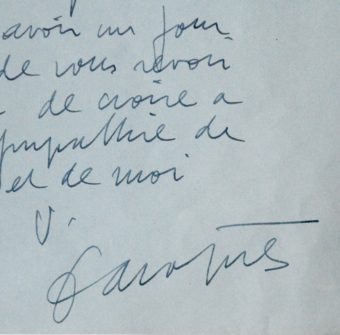 avoir un jour
de vous revoir
de croire a
sympathie de
et de moi
V.